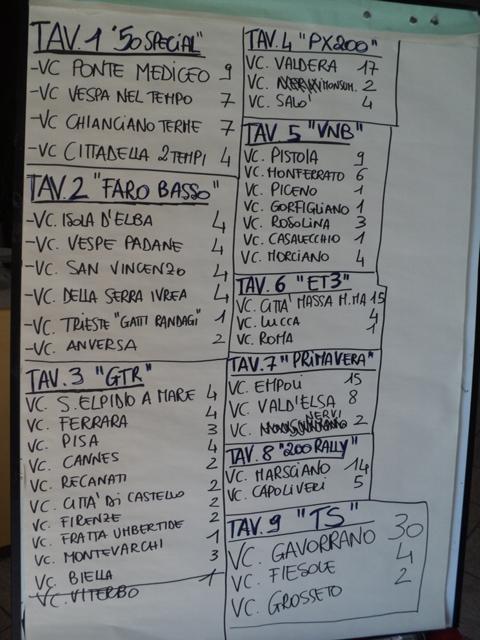 TAV. 1 "50 SPECIAL"
- VC PONTE MEDICEO 9
- VC VESPA NEL TEMPO 7
- VC CHIANCIANO TERME 7
- VC CITTADELLA 2 TEMPI 4
TAV. 2 "FARO BASSO"
- VC. ISOLA D'ELBA 4
- VC. VESPE PADANE 4
- VC. SAN VINCENZO 4
- VC. DELLA SERRA IVREA 4
- VC. TRIESTE "GATTI RANDAGI" 1
- VC. ANVERSA 2
TAV. 3 "GTR"
VC. S. ELPIDIO A MARE 4
VC. FERRARA 4
VC. PISA 3
VC. CANNES 4
VC. RECANATI 2
VC. CITTA' DI CASTELLO 2
VC. FIRENZE 2
VC. FRATTA UMBERTIDE 2
VC. MONTEVARCHI 1
VC. BIELLA 3
VC. VITERBO 1
TAV. 4 "PX200"
VC. VALDERA 17
VC. MONSUM. 2
VC. SALO' 4
TAV. 5 "VNB"
VC. PISTOIA 9
VC. MONFERRATO 6
VC. PICENO 1
VC. GORFIGLIANO 1
VC. ROSOLINA 3
VC. CASALECCHIO 1
VC. MORCIANO 4
TAV. 6 "ET3"
VC. CITTA' MASSA M.MA 15
VC. LUCCA 4
VC. ROMA 1
TAV. 7 "PRIMAVERA"
VC. EMPOLI 15
VC. VALD'ELSA 8
VC. NERVI 2
TAV. 8 "200 RALLY"
VC. MARSCIANO 14
VC. CAPOLIVERI 5
TAV. 9 "TS"
VC. GAVORRANO 30
VC. FIESOLE 4
VC. GROSSETO 2